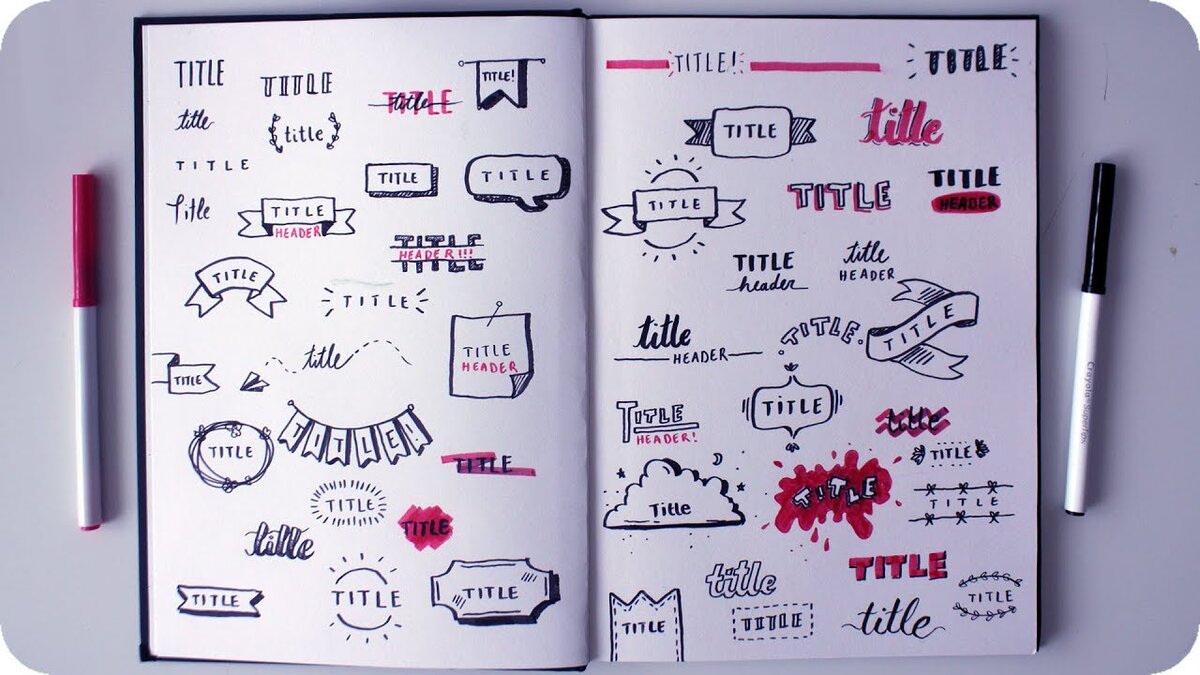 TITLE
TITLE
TITLE
title
TITLE!
title
title
TITLE
TITLE
TITLE
Title
TITLE
HEADER
TITLE
HEADER!!!
TITLE
TITLE
title
TITLE
HEADER
TITLE
TITLE
TITLE!
TITLE
TITLE
TITLE
title
TITLE
TITLE
TITLE
TITLE!
TITLE
TITLE
title
TITLE
TITLE
TITLE
HEADER
TITLE
header
title
HEADER
title
HEADER
TITLE.
TITLE
TITLE
TITLE
HEADER!
title
TITLE
Title
TITLE
TITLE
TITLE
title
TITLE
TITLE
TITLE
title
Crayola SuperTips